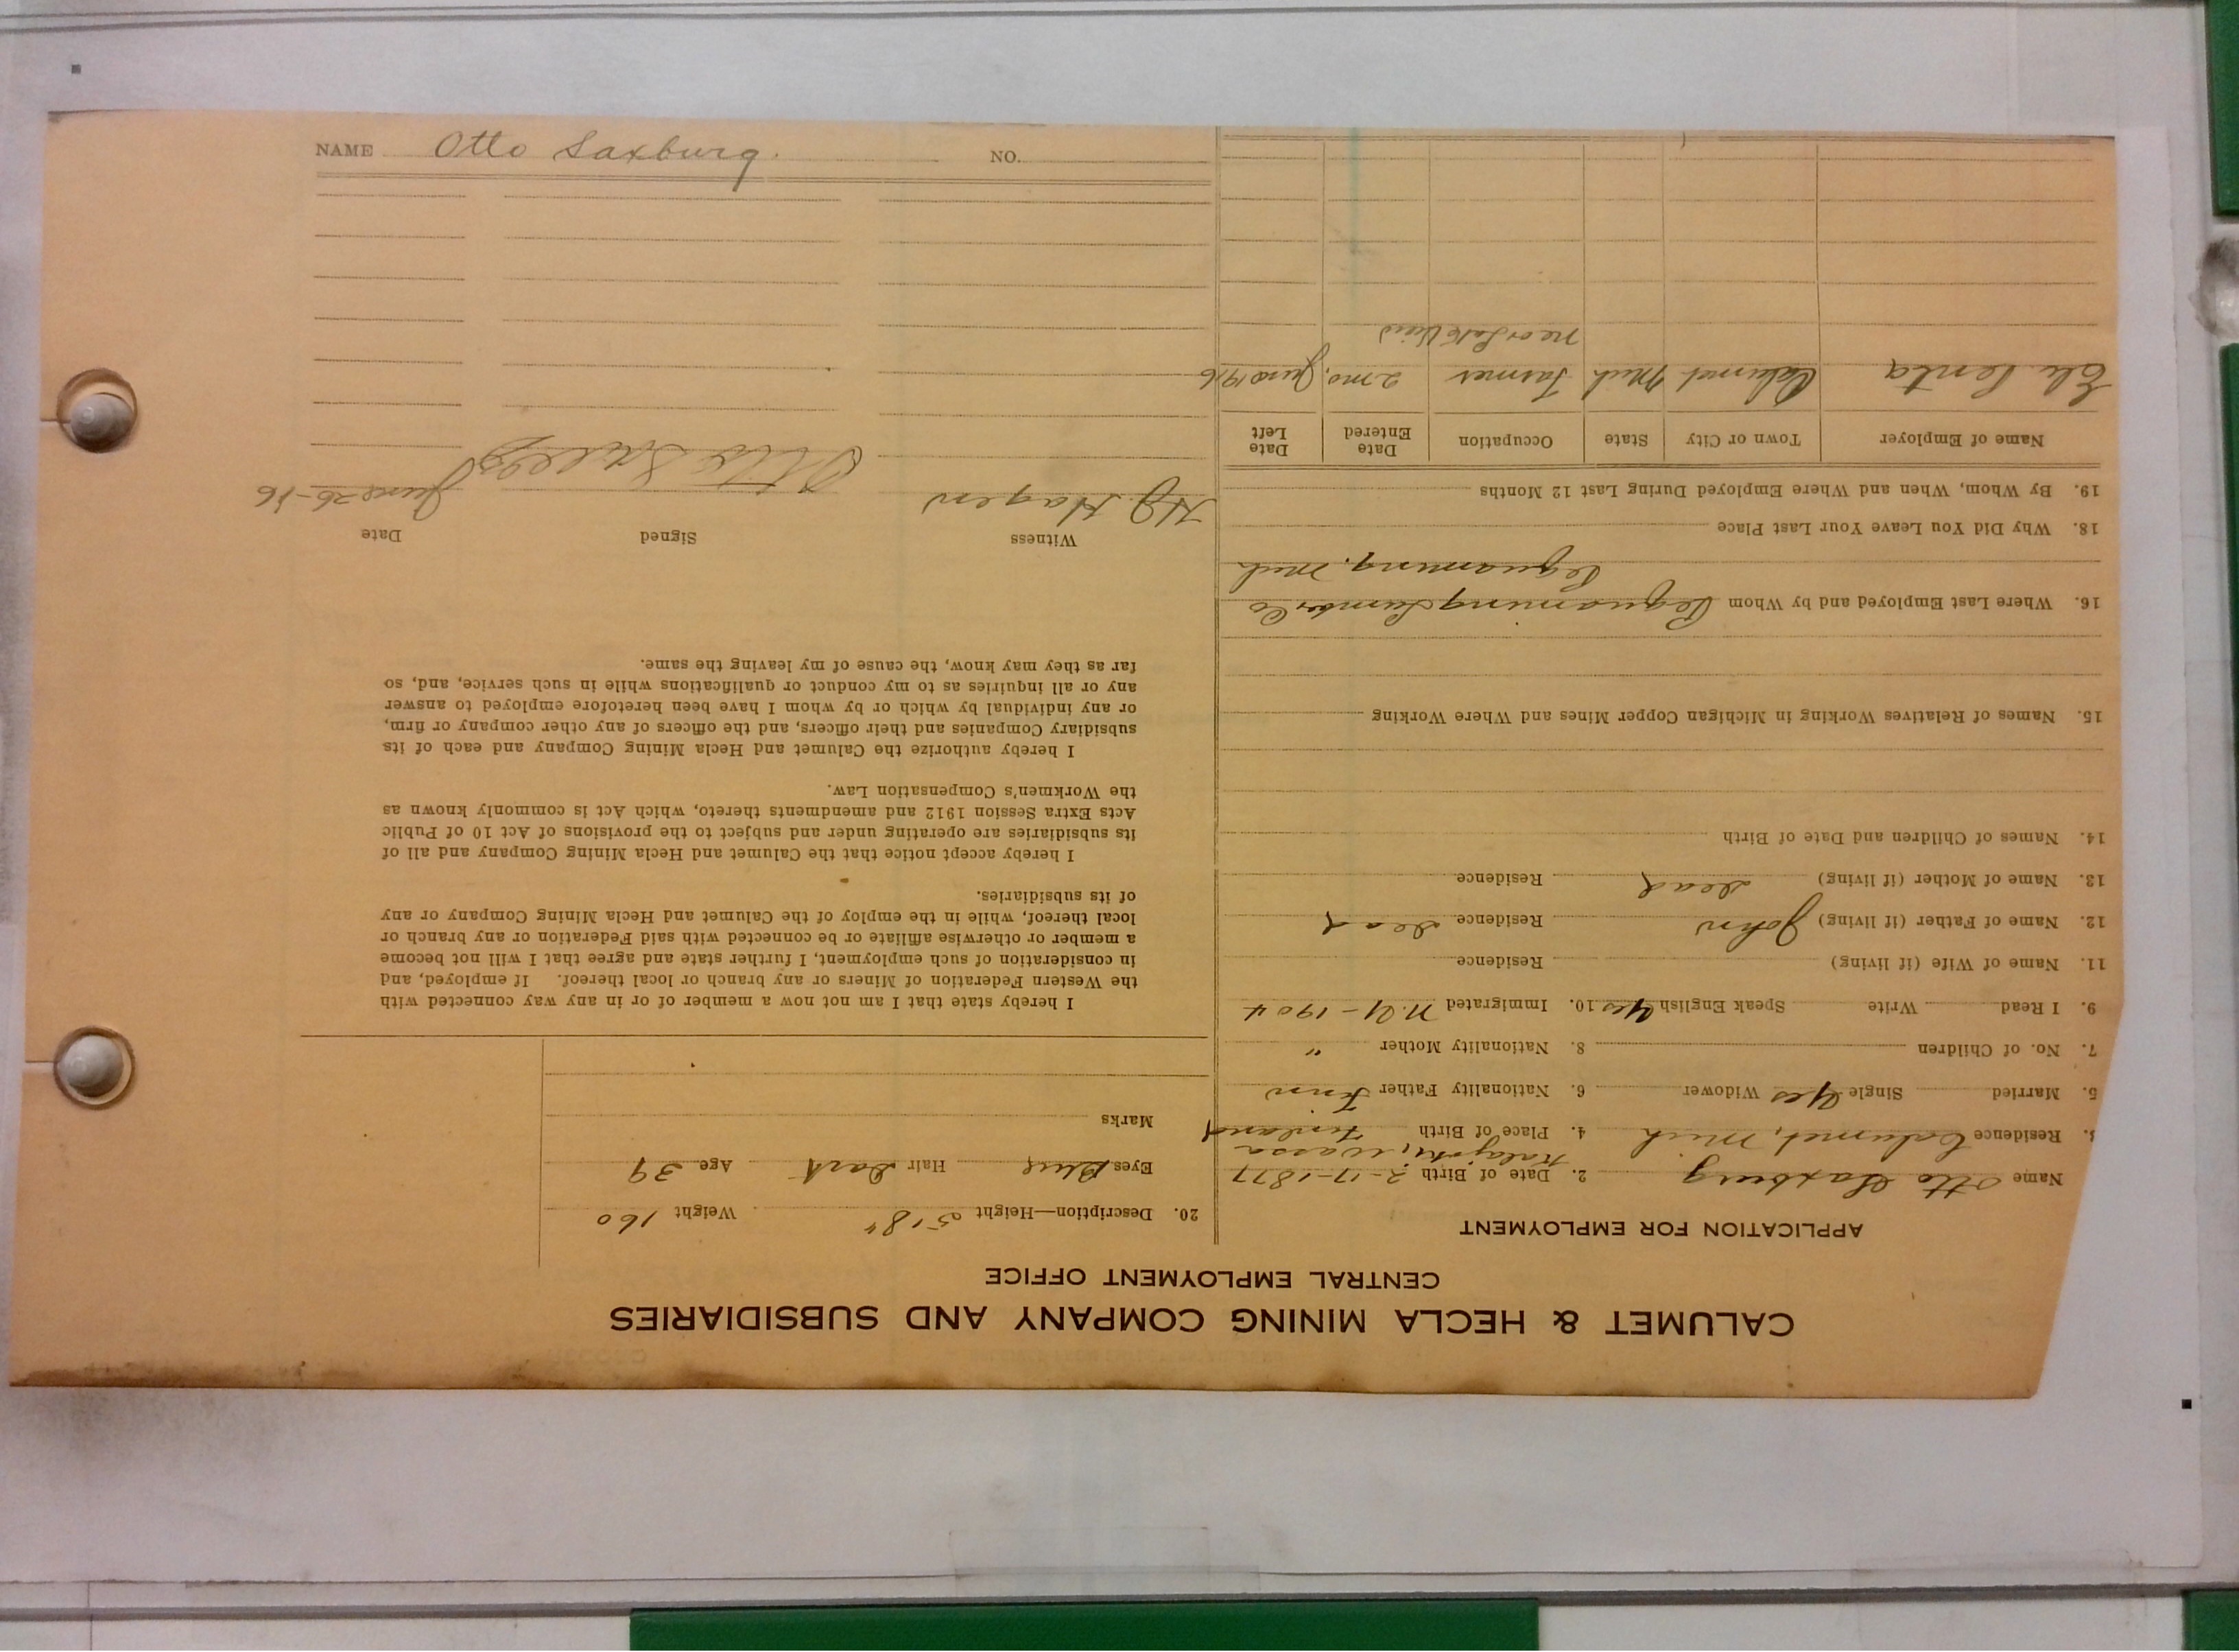 CALUMET & HECLA MINING COMPANY AND SUBSIDIARIES
CENTRAL EMPLOYMENT OFFICE
APPLICATION FOR EMPLOYMENT
Name Otto Saxburg 2. Date of Birth 2-17-1877
3. Residence Calumet, Mich 4. Place of Birth Kalajoki, Wassa Finland
5. Married Single Yes Widower 6. Nationality Father Finn
7. No. of Children 8. Nationality Mother "
9. I Read Write Speak English Yes 10. Immigrated N.Y - 1904
11. Name of Wife (if living) Residence
12. Name of Father (if living) John Residence dead
13. Name of Mother (if living) dead Residence
14. Names of Children and Date of Birth
15. Names of Relatives Working in Michigan Copper Mines and Where Working
16. Where Last Employed and by Whom Pequaming Lumber Co
Pequaming, Mich
18. Why Did You Leave Your Last Place
19. By Whom, When and Where Employed During Last 12 Months
Name of Employer Town or City State Occupation Date Entered Date Left
Eli Penta Calumet Mich Farmer 2 mo, June 1916
near
20. Description—Height 5'8" Weight 160
Eyes Blue Hair Dark Age 39
Marks
I hereby state that I am not now a member of or in any way connected with
the Western Federation of Miners or any branch or local thereof. If employed, and
in consideration of such employment, I further state and agree that I will not become
a member or otherwise affiliate or be connected with said Federation or any branch or
local thereof, while in the employ of the Calumet and Hecla Mining Company or any
of its subsidiaries.
I hereby accept notice that the Calumet and Hecla Mining Company and all of
its subsidiaries are operating under and subject to the provisions of Act 10 of Public
Acts Extra Session 1912 and amendments thereto, which Act is commonly known as
the Workmen's Compensation Law.
I hereby authorize the Calumet and Hecla Mining Company and each of its
subsidiary Companies and their officers, and the officers of any other company or firm,
or any individual by which or by whom I have been heretofore employed to answer
any or all inquiries as to my conduct or qualifications while in such service, and, so
far as they may know, the cause of my leaving the same.
Witness Signed Date
H.J. Hagen Otto June 26-16
NAME Otto Saxburg. NO.